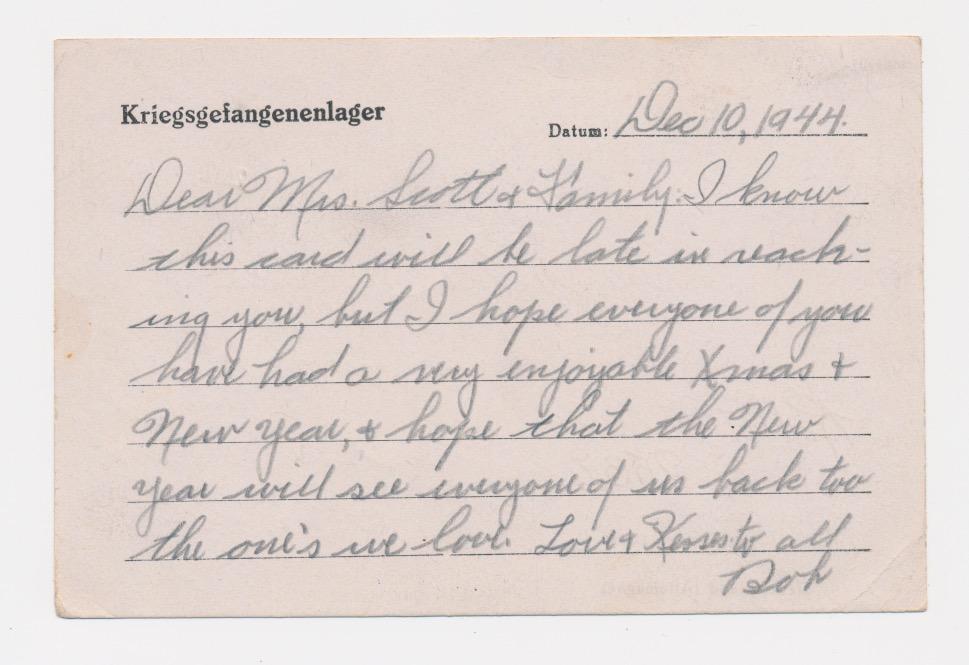 Kriegsgefangenenlager
Datum: Dec 10, 1944.
Dear Mrs. Scott & Family: I know
this card will be late in reach-
ing you, but I hope everyone of you
have had a very enjoyable Xmas &
New Year, & hope that the New
Year will see everyone of us back too
the one's we love. Love & Kisses to all
Bob